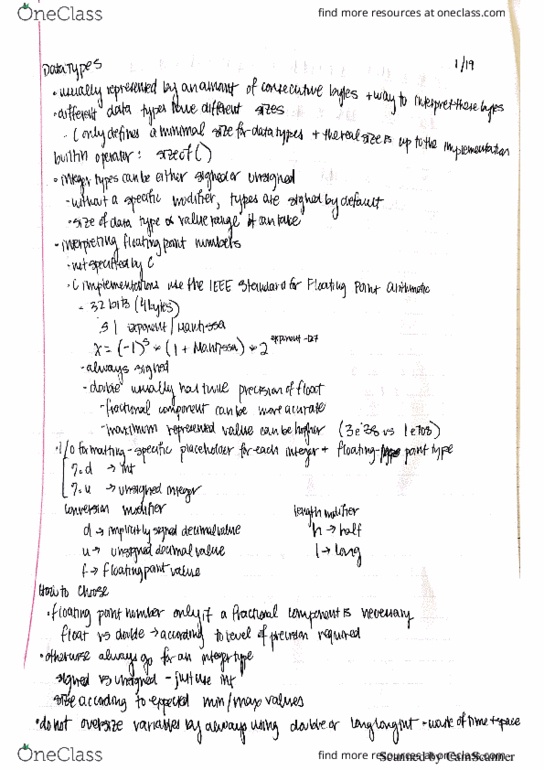 OneClass
find more resources at oneclass.com
Data Types
1/19
• usually represented by an amount of consecutive bytes + way to interpret these bytes
• different data types have different sizes
- C only defines a minimal size for data types + the real size is up to the implementation
builtin operator: sizeof()
• integer types can be either signed or unsigned
- without a specific modifier, types are signed by default
• size of data type α value range it can take
• interpreting floating point numbers
- not specified by C
- C implementations use the IEEE Standard for Floating Point Arithmetic
- 32 bits (4 bytes)
S | exponent | Mantissa
x = (-1)^s * (1 + Mantissa) * 2^exponent-127
- always signed
- double usually has twice precision of float
- fractional component can be more accurate
- maximum represented value can be higher (3e38 vs 1e308)
• I/O formatting - specific placeholder for each integer + floating-point type
%d → int
%u → unsigned integer
conversion modifier
length modifier
d → implicitly signed decimal value
h → half
u → unsigned decimal value
l → long
f → floating point value
How to Choose
• floating point number only if a fractional component is necessary
float vs double → according to level of precision required
• otherwise always go for an integer type
signed vs unsigned - just use int
size according to expected min/max values
• do not oversize variables by always using double or long long int - waste of time + space
OneClass
find more resources at oneclass.com
Scanned by CamScanner